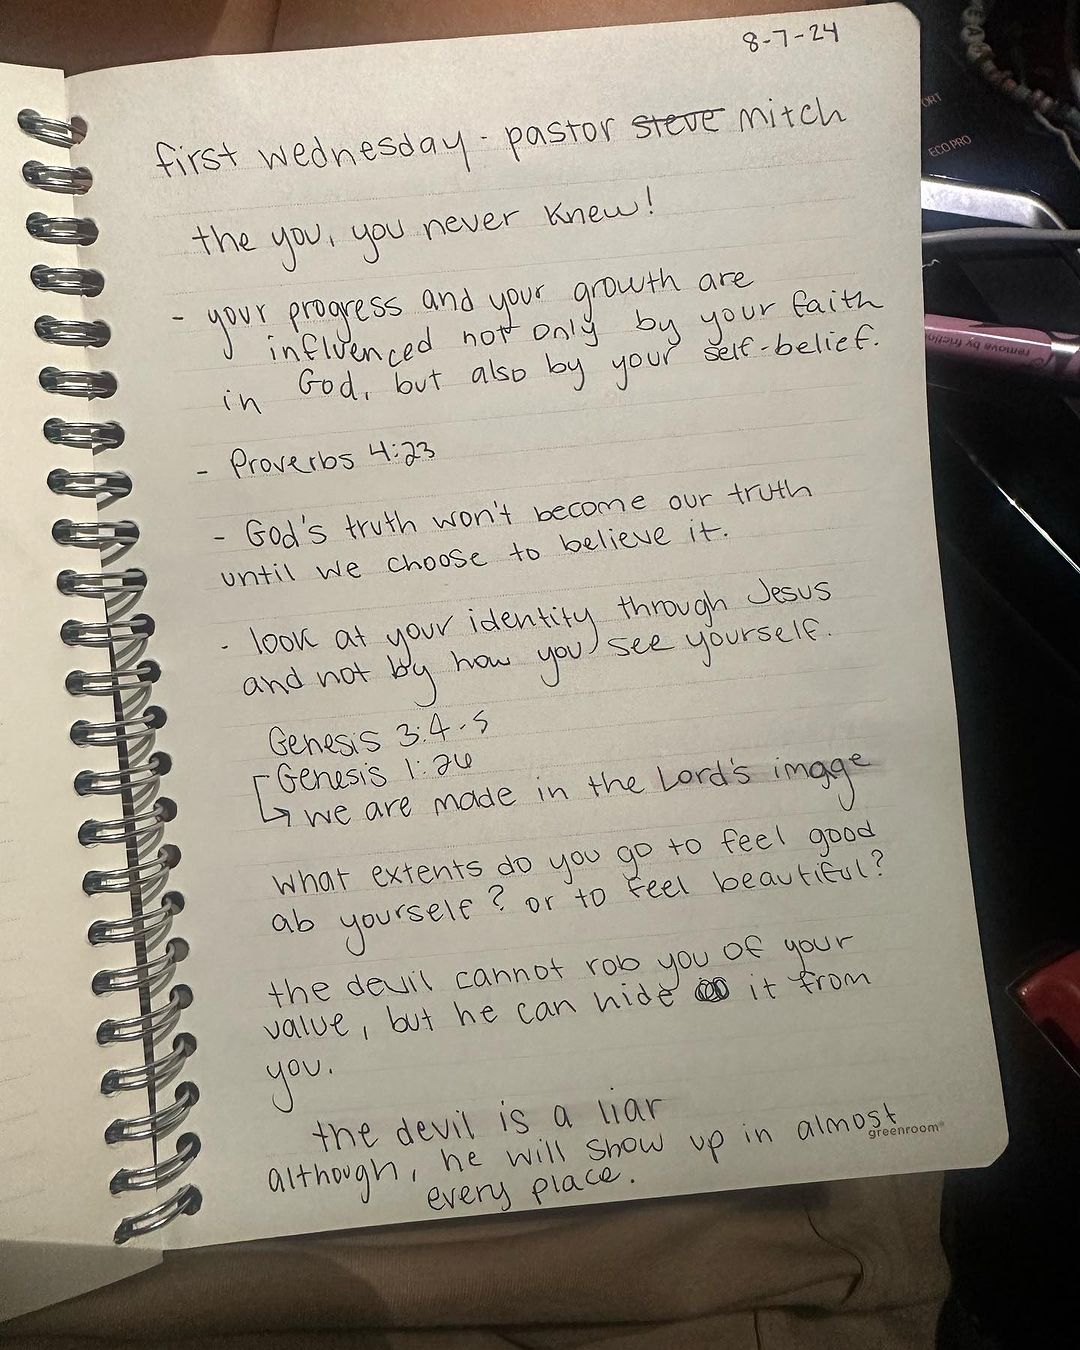 8-7-24
first wednesday - pastor steve mitch
the you, you never knew!
- your progress and your growth are
influenced not only by your faith
in God, but also by your self-belief.
- Proverbs 4:23
- God's truth won't become our truth
until we choose to believe it.
- look at your identity through Jesus
and not by how you see yourself.
Genesis 3:4-5
Genesis 1:26
↳ we are made in the Lord's image
what extents do you go to feel good
ab yourself? or to feel beautiful?
the devil cannot rob you of your
value, but he can hide it from
you.
the devil is a liar
although, he will show up in almost
every place.
greenroom®
ORT
ECO PRO
remove by friction